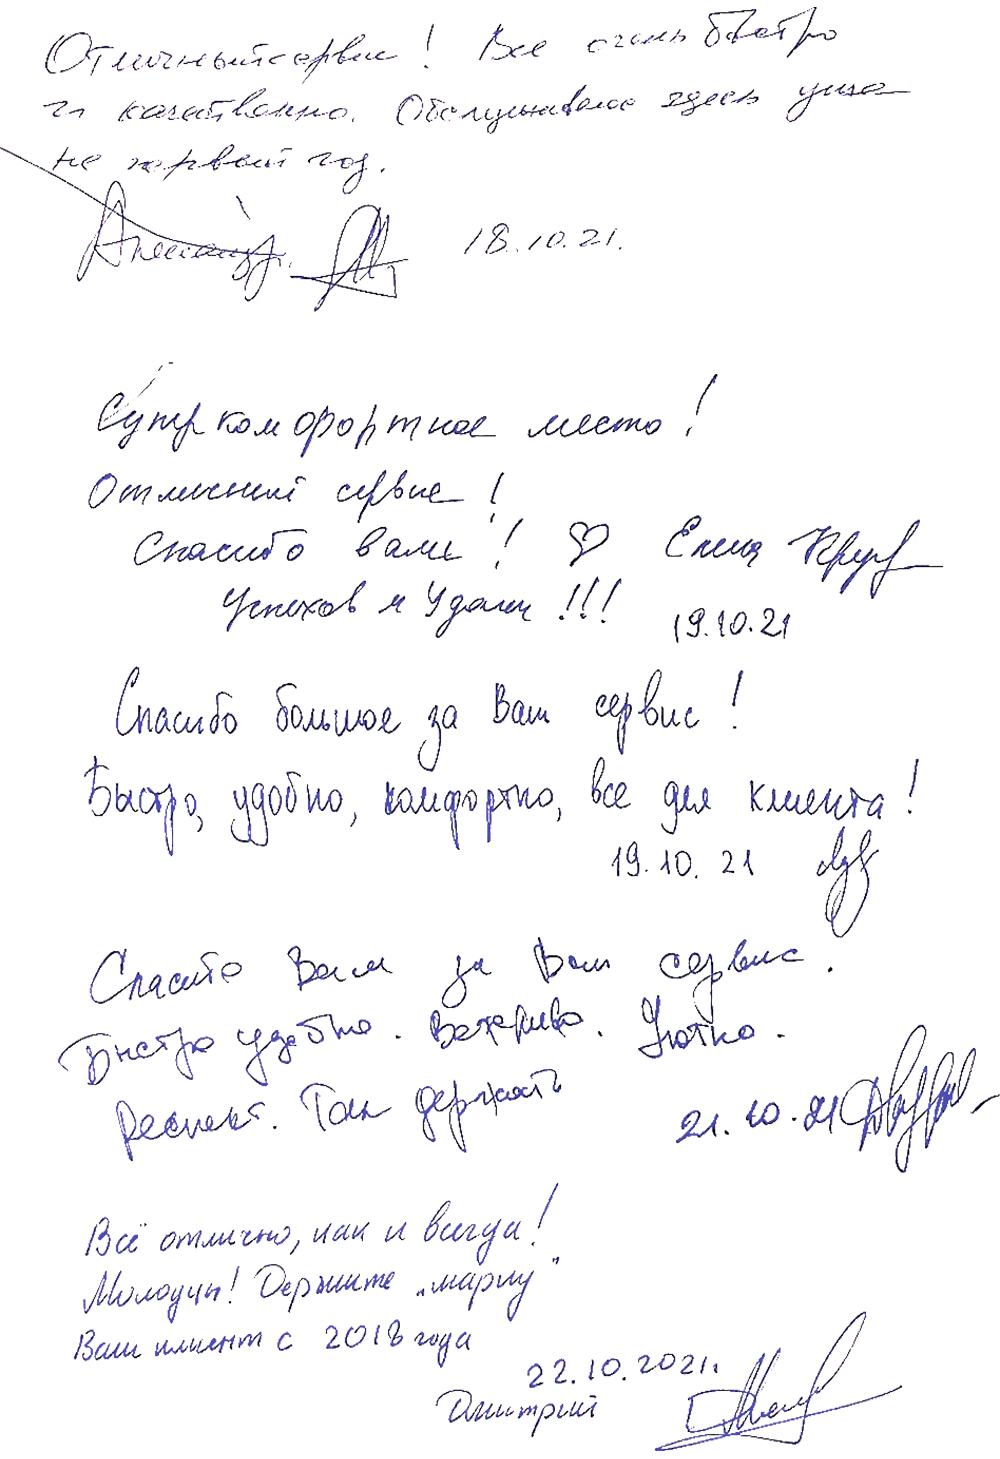 Отличный сервис! Все очень быстро
и качественно. Обслуживаюсь здесь уже
не первый год.
Александр. 18.10.21.
Супер комфортное место!
Отличный сервис!
Спасибо вам! Елена
Успехов и Удачи!!!
19.10.21
Спасибо большое за Ваш сервис!
Быстро, удобно, комфортно, все для клиента!
19.10.21
Спасибо Вам за Ваш сервис.
Быстро удобно. Уютно.
Респект. Так держать
21.10.21
Всё отлично, как и всегда!
Молодцы! Держите „марку"
Ваш клиент с 2018 года
22.10.2021г.
Дмитрий